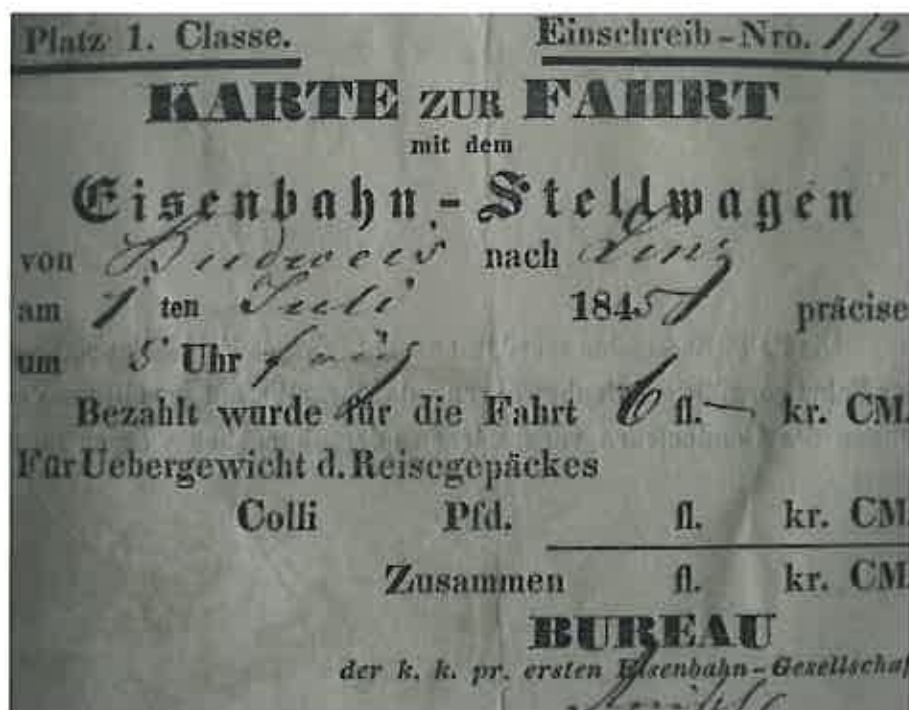 Platz 1. Classe.
Einschreib-Nro. 1/2
KARTE ZUR FAHRT
mit dem
Eisenbahn-Stellwagen
von Budweis nach Linz
am 1 ten Juli 184 präcise
um 5 Uhr früh
Bezahlt wurde für die Fahrt 6 fl. — kr. CM.
Für Uebergewicht d. Reisegepäckes
Colli Pfd. fl. kr. CM.
Zusammen fl. kr. CM.
BUREAU
der k. k. pr. ersten Eisenbahn-Gesellschaf